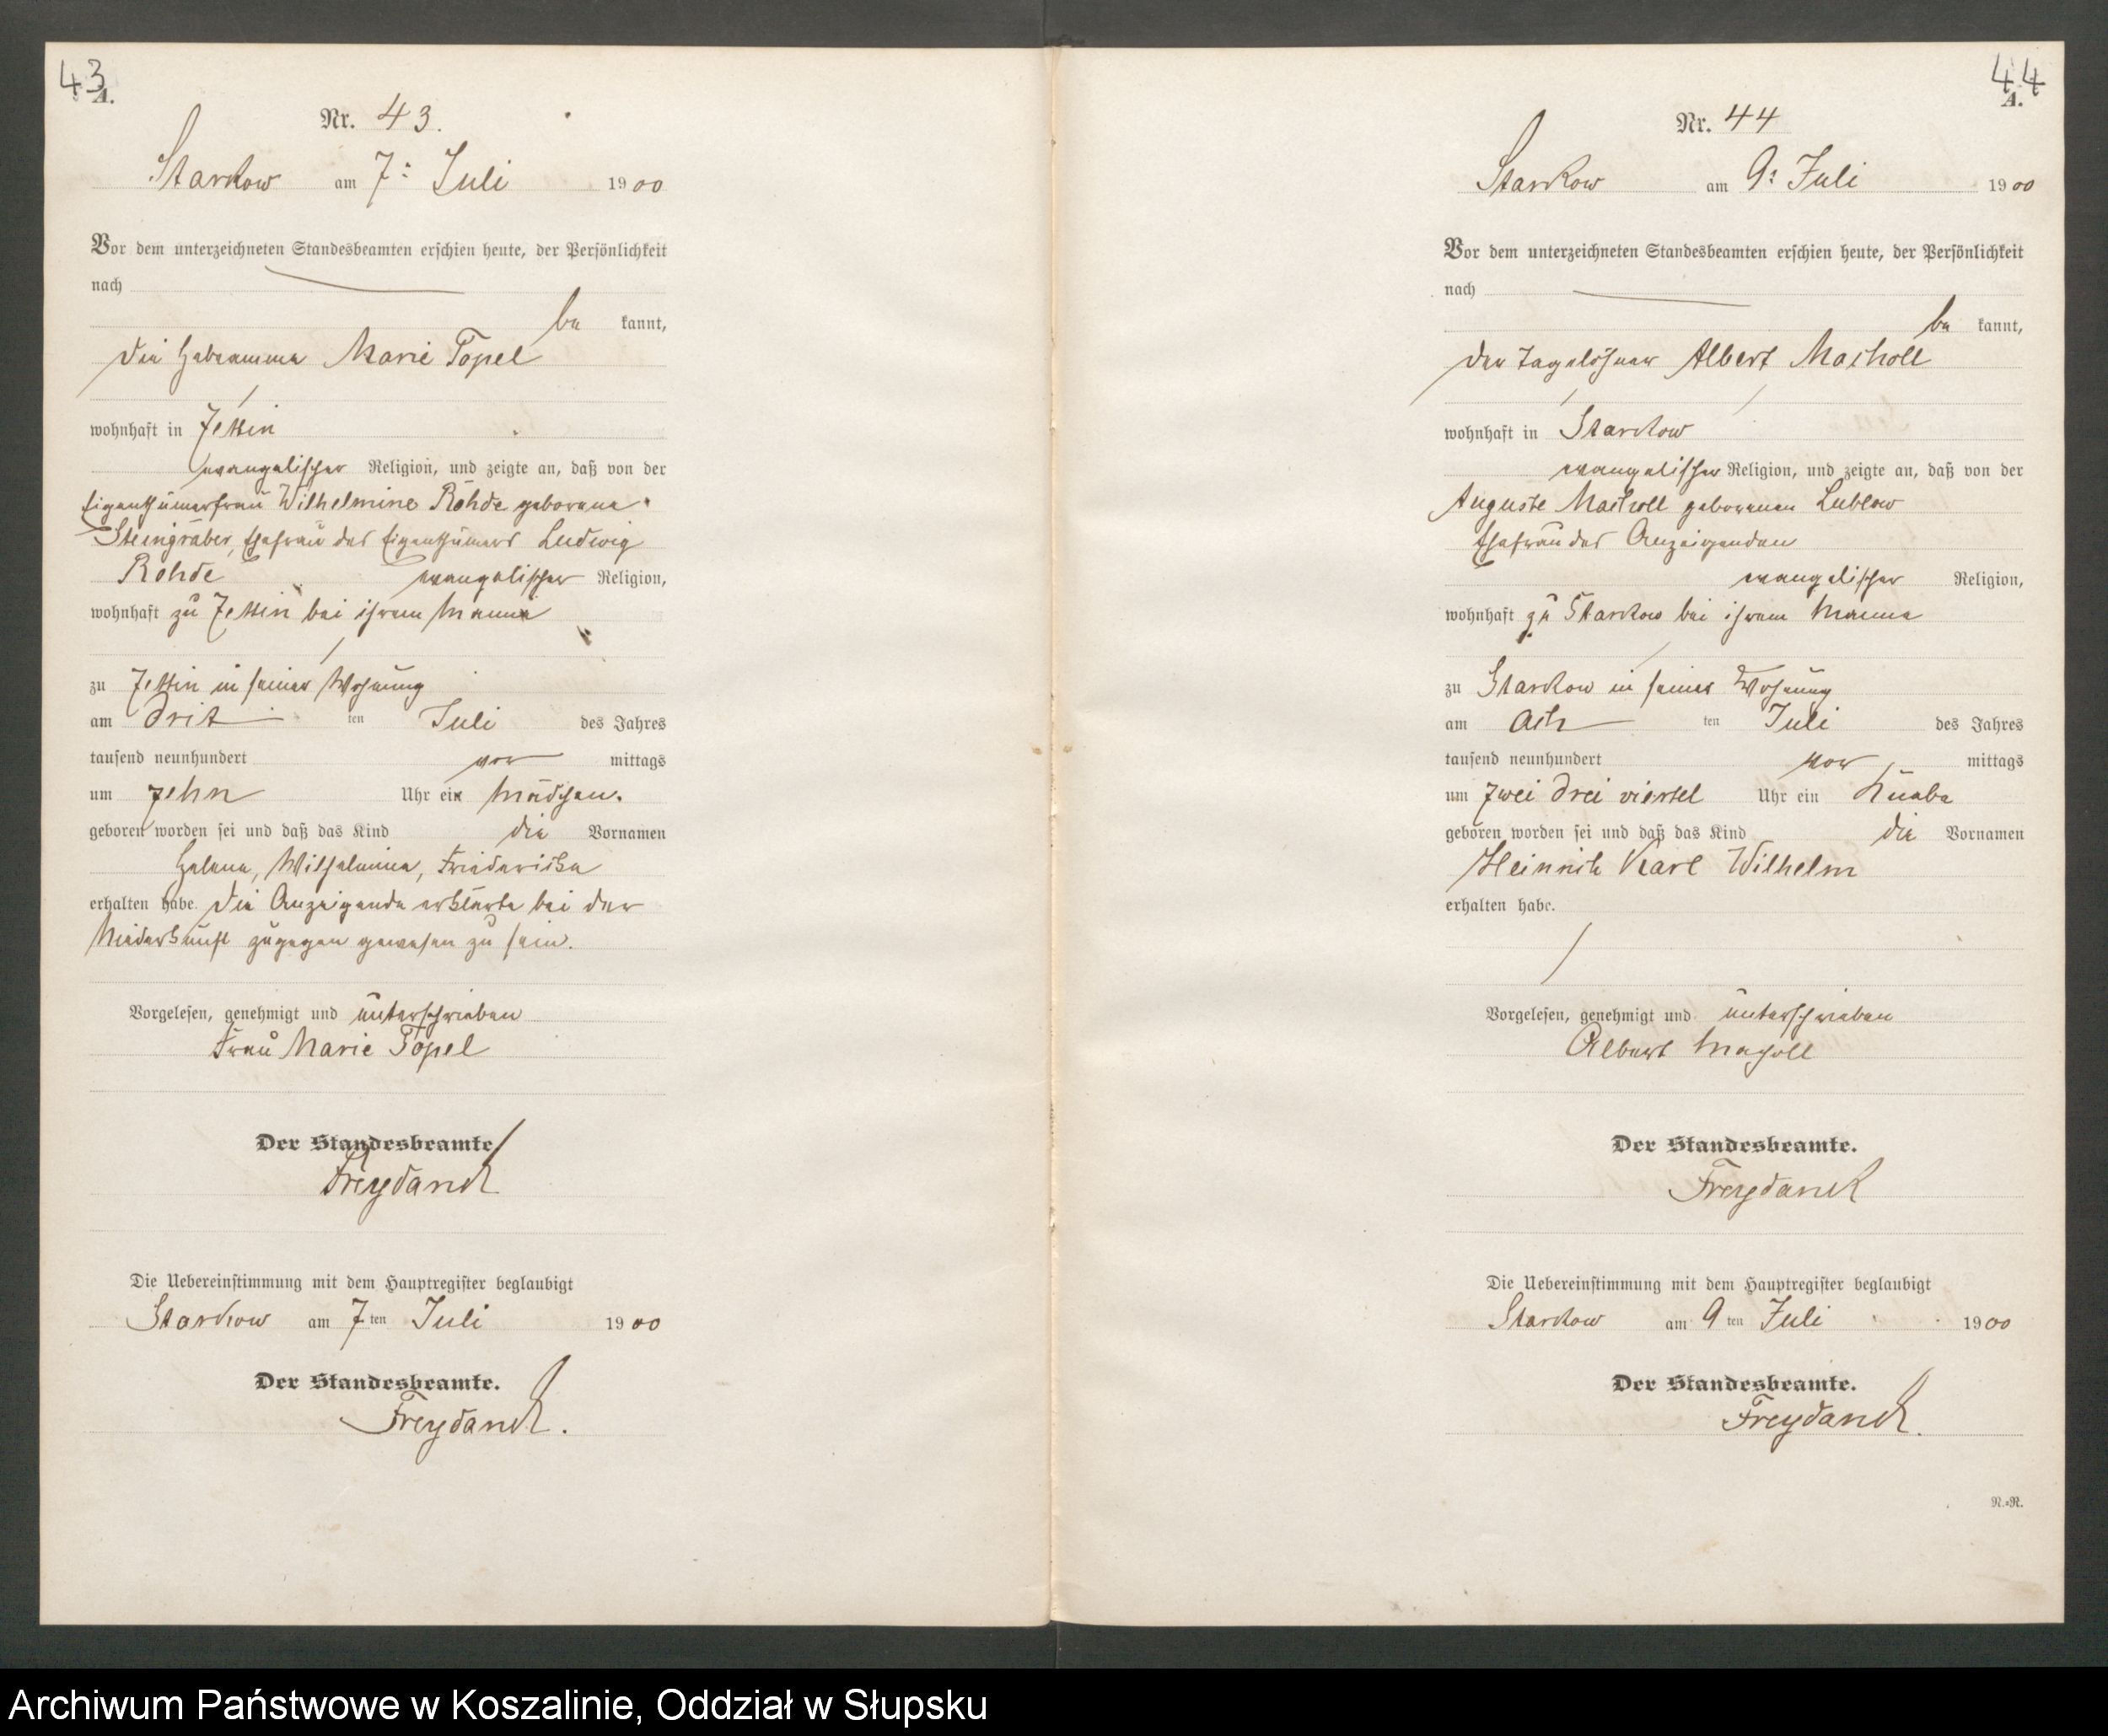 43
A.
Nr. 43.
Starkow am 7. Juli 1900
Vor dem unterzeichneten Standesbeamten erschien heute, der Persönlichkeit
nach
be kannt,
die Hebeamme Marie Topel
wohnhaft in Jettin
evangelischer Religion, und zeigte an, daß von der
Eigenthümerfrau Wilhelmine Rohde geborene
Steingräber, Ehefrau des Eigenthümers Ludwig
Rohde evangelischer Religion,
wohnhaft zu Jettin bei ihrem Manne
zu Jettin in seiner Wohnung
am drit ten Juli des Jahres
tausend neunhundert vor mittags
um zehn Uhr ein Mädchen.
geboren worden sei und daß das Kind die Vornamen
Helene, Wilhelmine, Friederike
erhalten habe. Die Anzeigende erklärte bei der
Niederkunft zugegen gewesen zu sein.
Vorgelesen, genehmigt und unterschrieben
Frau Marie Topel
Der Standesbeamte
Freydanck
Die Uebereinstimmung mit dem Hauptregister beglaubigt
Starkow am 7ten Juli 1900
Der Standesbeamte.
Freydanck.
44
A.
Nr. 44
Starkow am 9. Juli 1900
Vor dem unterzeichneten Standesbeamten erschien heute, der Persönlichkeit
nach
be kannt,
der Tagelöhner Albert Macholl
wohnhaft in Starkow
evangelischer Religion, und zeigte an, daß von der
Auguste Macholl geborenen Lublow
Ehefrau des Anzeigenden
evangelischer Religion,
wohnhaft zu Starkow bei ihrem Manne
zu Starkow in seiner Wohnung
am ach ten Juli des Jahres
tausend neunhundert vor mittags
um zwei drei viertel Uhr ein Knabe
geboren worden sei und daß das Kind die Vornamen
Heinrich Karl Wilhelm
erhalten habe.
Vorgelesen, genehmigt und unterschrieben
Albert Macholl
Der Standesbeamte.
Freydanck
Die Uebereinstimmung mit dem Hauptregister beglaubigt
Starkow am 9ten Juli 1900
Der Standesbeamte.
Freydanck.
N.=R.
Archiwum Państwowe w Koszalinie, Oddział w Słupsku